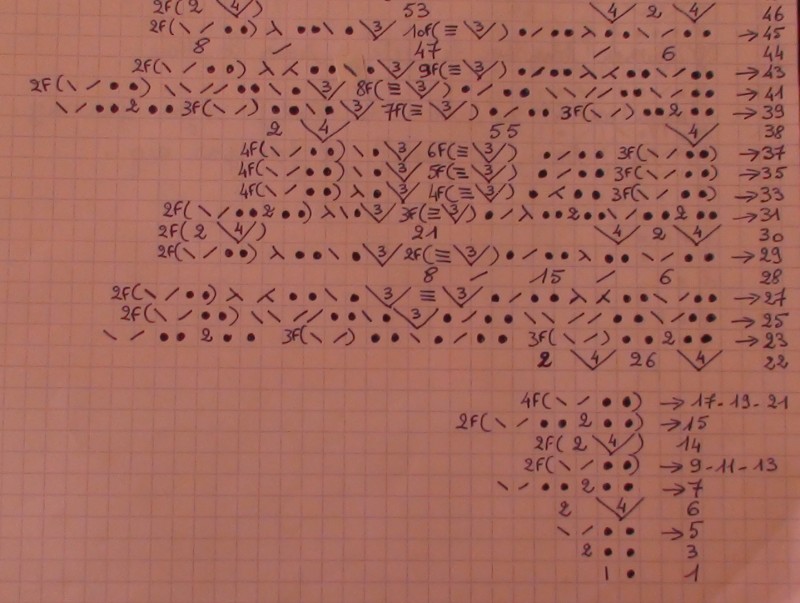 2F(2 \4/) 53 \4/ 2 \4/ 46
2F(\ / • •) λ • • \ • \3/ 10F(≡ \3/) • / • • λ • • \ / • • → 45
8 / 47 / 6 44
2F(\ / • •) λ ⋌ • • \ • \3/ 9F(≡ \3/) • / • • λ ⋌ • • \ / • • → 43
2F(\ / • •) \ \ / / • • \ \3/ 8F(≡ \3/) • / • • \ \ / / • • \ / • • → 41
\ / • • 2 • • 3F(\ /) • • \ • \3/ 7F(≡ \3/) • / • • 3F(\ /) • • 2 • • → 39
2 \4/ 55 \4/ 38
4F(\ / • •) \ • \3/ 6F(≡ \3/) • / • • 3F(\ / • •) → 37
4F(\ / • •) \ • \3/ 5F(≡ \3/) • / • • 3F(\ / • •) → 35
4F(\ / • •) λ • \3/ 4F(≡ \3/) • ⋌ • • 3F(\ / • •) → 33
2F(\ / • • 2 • •) λ \ • \3/ 3F(≡ \3/) • / λ • • 2 • • \ / • • 2 • • → 31
2F(2 \4/) 21 \4/ 2 \4/ 30
2F(\ / • •) λ • • \ • \3/ 2F(≡ \3/) • / • • λ • • \ / • • → 29
8 / 15 / 6 28
2F(\ / • •) λ ⋌ • • \ • \3/ ≡ \3/ • / • • λ ⋌ • • \ / • • → 27
2F(\ / • •) \ \ / / • • \ • \3/ • / • • \ \ / / • • \ / • • → 25
\ / • • 2 • • 3F(\ /) • • \ • / • • 3F(\ /) • • 2 • • → 23
2 \4/ 26 \4/ 22
4F(\ / • •) → 17-19-21
2F(\ / • • 2 • •) → 15
2F(2 \4/) 14
2F(\ / • •) → 9-11-13
\ / • • 2 • • → 7
2 \4/ 6
\ / • • → 5
2 • • 3
| • 1